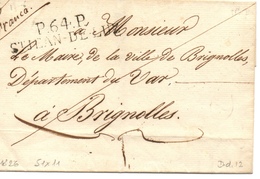 Franco
P.64.P.
ST-JEAN-DE-
Monsieur
Le Maire, de la ville de Brignolles,
Département du Var,
à Brignolles.
1826 51x11
Ind. 12